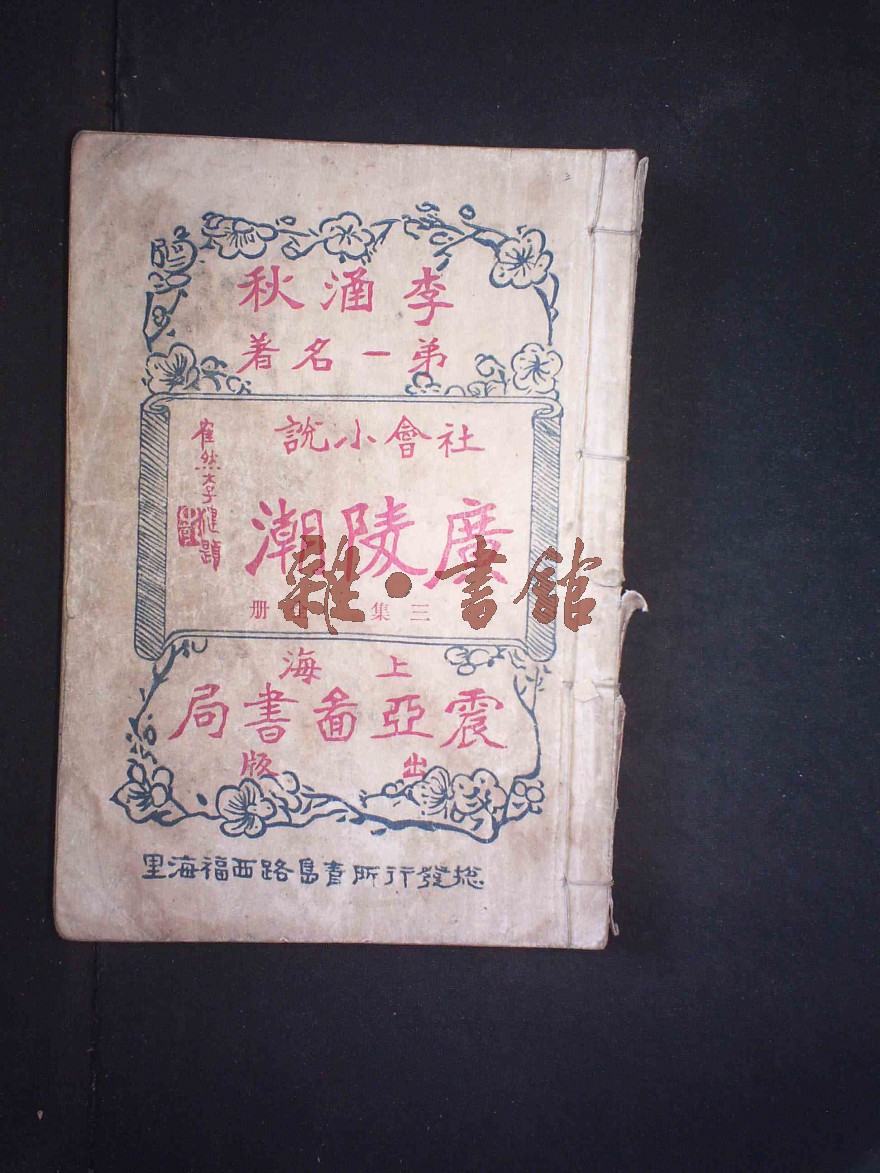 李涵秋
弟一名著
社會小說
廣陵潮
三集 册
隺然李健題
上海
震亞啚書局
出版
総發行所青島路西福海里
雜·書館